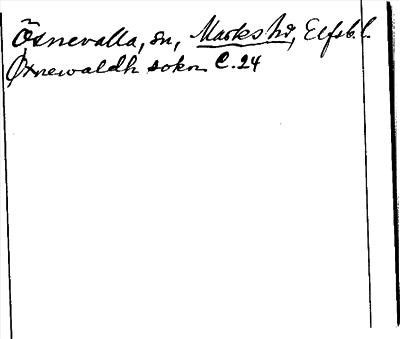 Öxnevalla, sn, Marks hd, Elfsb. l.
Øxnewaldh sokn C. 24